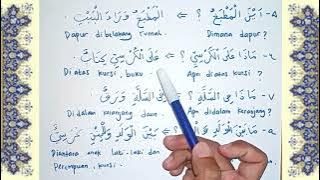 ٥- أَيْنَ الْمَطْبَخُ ؟ ⇐ الْمَطْبَخُ وَرَاءَ الْبَيْتِ
Dapur dibelakang rumah. Dimana dapur ?
٦- مَاذَا عَلَى الْكُرْسِيِّ ؟ ⇐ عَلَى الْكُرْسِيِّ كِتَابٌ
Di atas kursi, buku Apa diatas kursi ?
٧- مَاذَا فِى السَّلَّةِ ؟ السَّلَّةِ وَرَقٌ
Didalam keranjang Apa didalam keranjang
٨- مَا بَيْنَ الْوَلَدِ وَ ؟ بَيْنَ الْوَلَدِ وَالْبِنْتِ كُرْسِيٌّ
Diantara anek laki-laki dan
Perempuan, kursi.